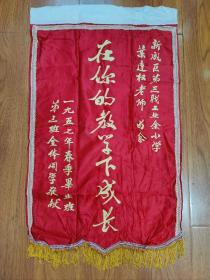 新成区第三戏工业余小学
叶连松老师 留念
在你的教学下成长
一九五七年春季毕业班
第三班全体同学敬献